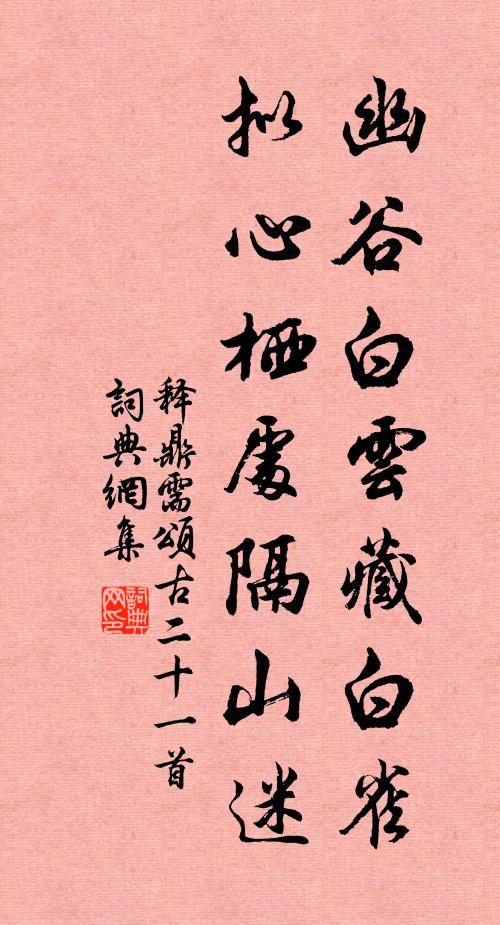 幽谷白雲藏白雀
拟心栖處隔山迷
释鼎需頌古二十一首
詞典網集
詞典网印